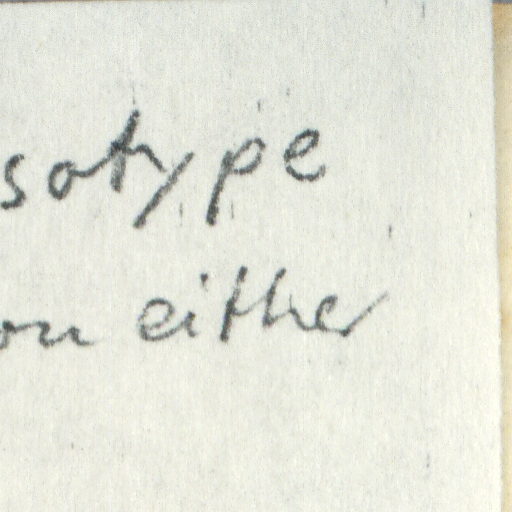 sotype
on either